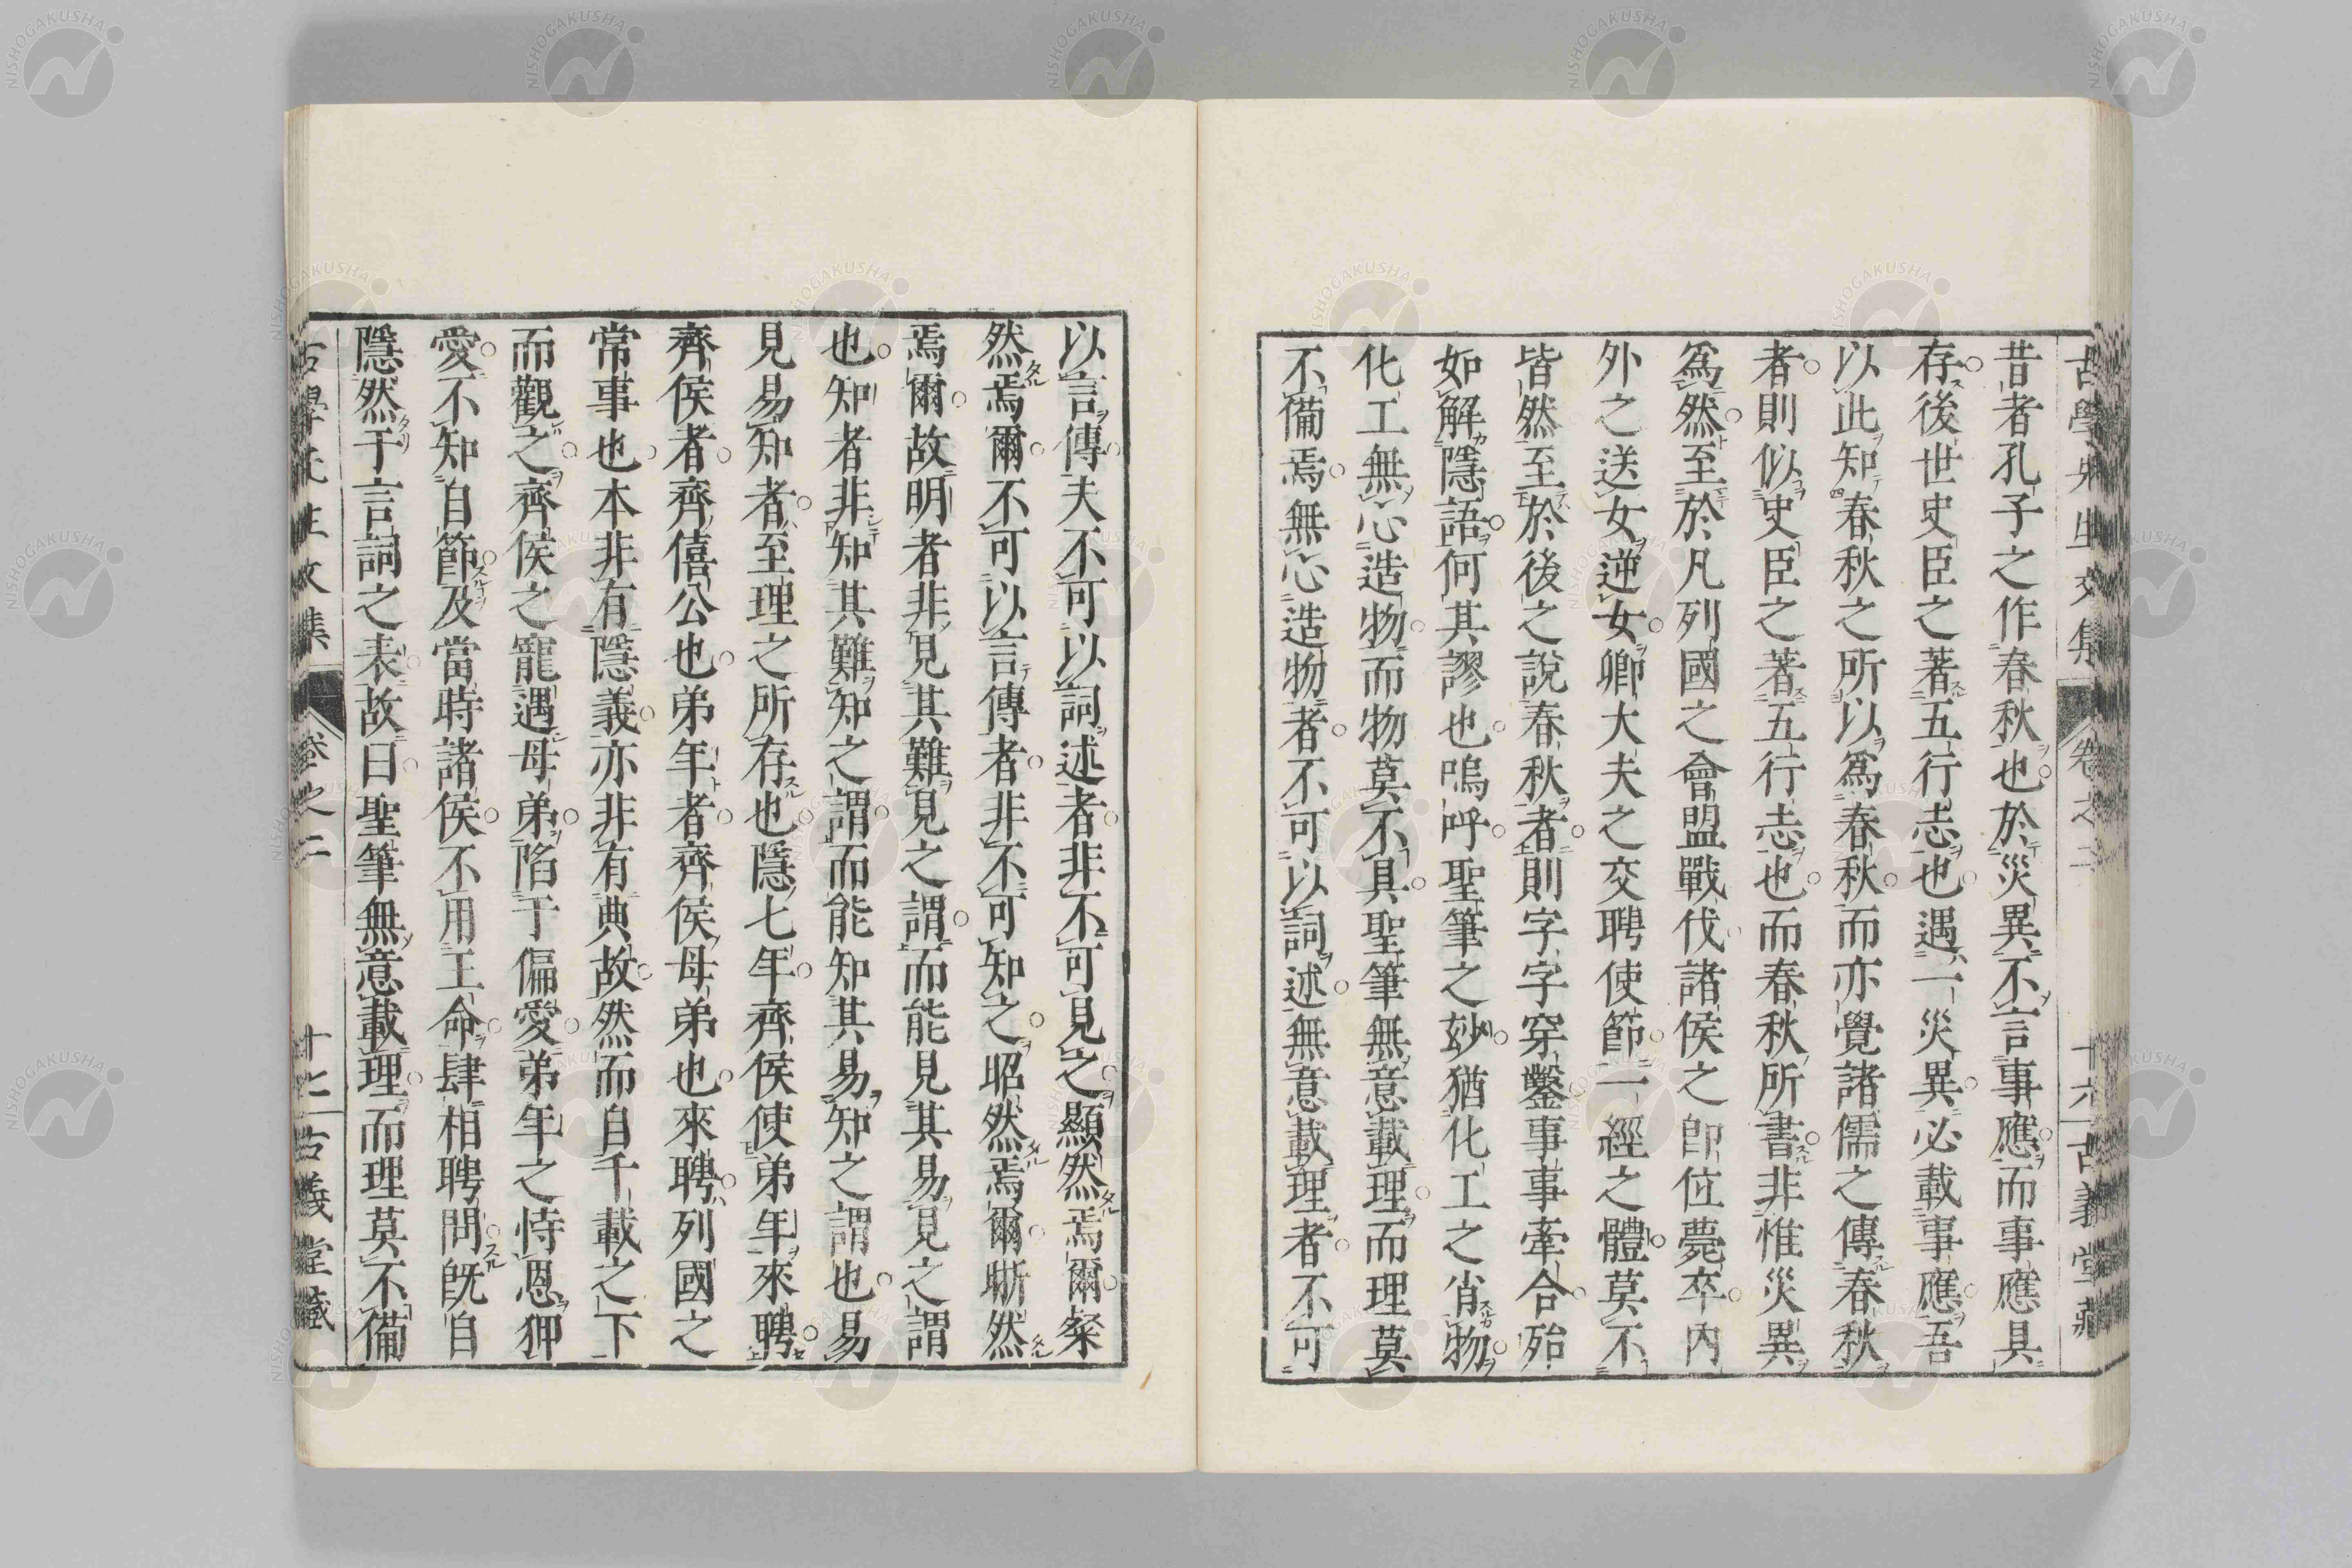 古學先生文集 卷之二 十六 古義堂藏
昔者孔子之作春秋也於災異不言事應而事應具
存後世史臣之著五行志也遇一災異必載事應吾
以此知春秋之所以爲春秋而亦覺諸儒之傳春秋
者則似史臣之著五行志也而春秋所書非惟災異
爲然至於凡列國之會盟戰伐諸侯之卽位薨卒內
外之送女逆女卿大夫之交聘使節一經之體莫不
皆然至於後之說春秋者則字字穿鑿事事牽合殆
如解隱語何其謬也嗚呼聖筆之玅猶化工之肖物
化工無心造物而物莫不具聖筆無意載理而理莫
不備焉無心造物者不可以詞述無意載理者不可
以言傳夫不可以詞述者非不可見之顯然焉爾粲
然焉爾不可以言傳者非不可知之昭然焉爾晰然
焉爾故明者非見其難見之謂而能見其易見之謂
也知者非知其難知之謂而能知其易知之謂也易
見易知者至理之所存也隱七年齊侯使弟年來聘
齊侯者齊僖公也弟年者齊侯母弟也來聘列國之
常事也本非有隱義亦非有典故然而自千載之下
而觀之齊侯之寵遇母弟陷于偏愛弟年之恃恩狎
愛不知自節及當時諸侯不用王命肆相聘問旣自
隱然于言詞之表故曰聖筆無意載理而理莫不備
古學先生文集 卷之二 十七 古義堂藏